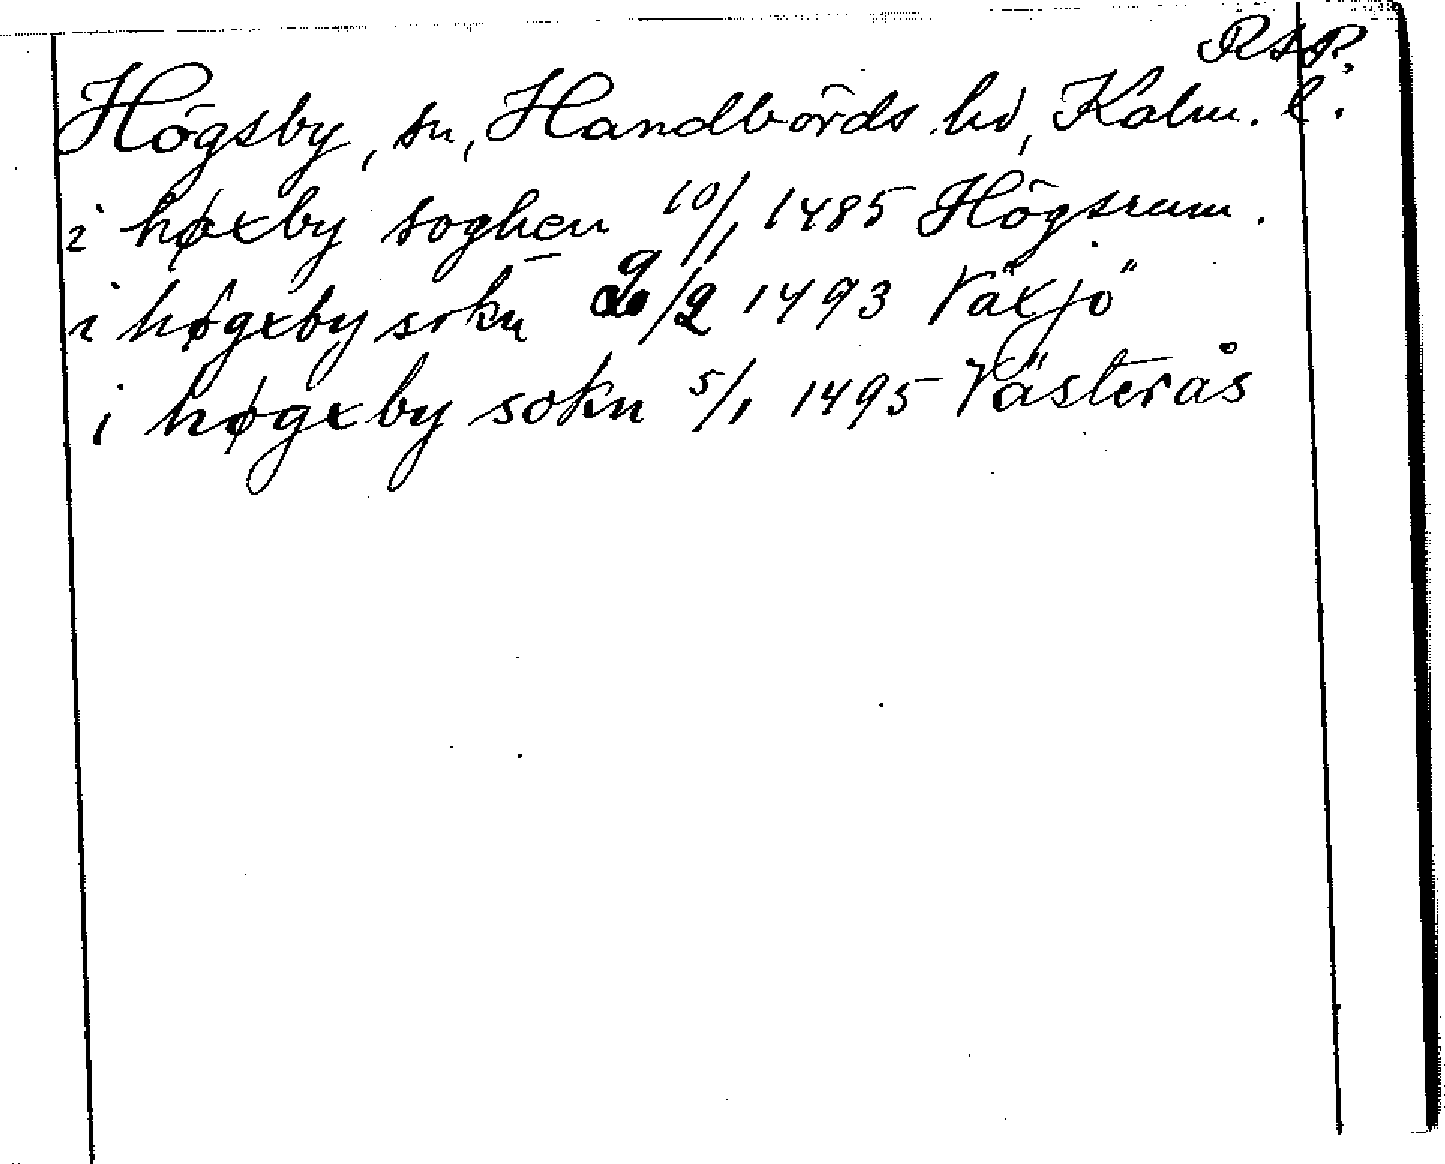 RAP.
Högsby, sn, Handbörds hd, Kalm. l.
i høxby soghen 10/1 1485 Högsrum.
i høgxby sokn 2/2 1493 Växjö
i høgxby sokn 5/1 1495 Västerås